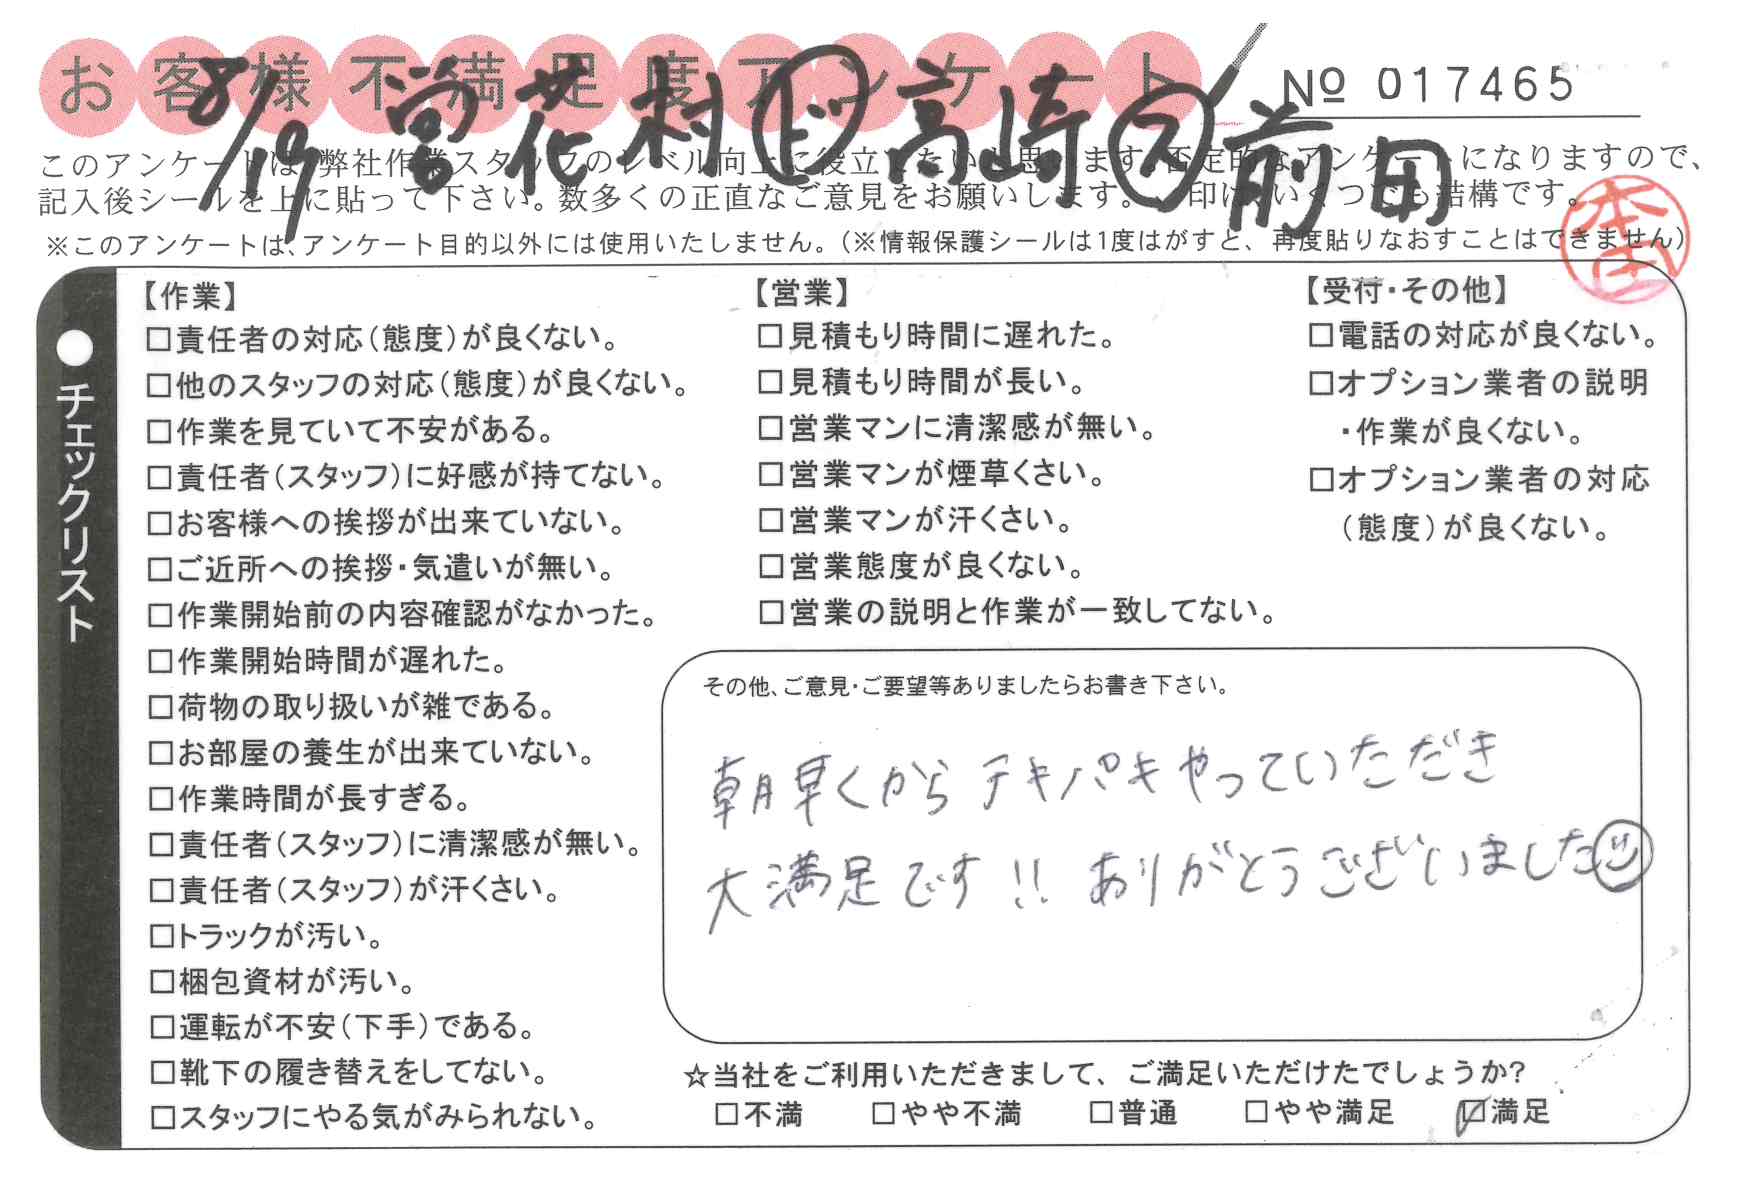 お客様不満足度アンケート
№ 017465
8/19 営 花村 ビ 高崎 ラ 前田
このアンケートは、弊社作業スタッフのレベル向上に役立てたいと思います。否定的なアンケートになりますので、
記入後シールを上に貼って下さい。数多くの正直なご意見をお願いします。✓印は、いくつでも結構です。
※このアンケートは、アンケート目的以外には使用いたしません。（※情報保護シールは1度はがすと、再度貼りなおすことはできません）
本田
●チェックリスト
【作業】
□責任者の対応（態度）が良くない。
□他のスタッフの対応（態度）が良くない。
□作業を見ていて不安がある。
□責任者（スタッフ）に好感が持てない。
□お客様への挨拶が出来ていない。
□ご近所への挨拶・気遣いが無い。
□作業開始前の内容確認がなかった。
□作業開始時間が遅れた。
□荷物の取り扱いが雑である。
□お部屋の養生が出来ていない。
□作業時間が長すぎる。
□責任者（スタッフ）に清潔感が無い。
□責任者（スタッフ）が汗くさい。
□トラックが汚い。
□梱包資材が汚い。
□運転が不安（下手）である。
□靴下の履き替えをしてない。
□スタッフにやる気がみられない。
【営業】
□見積もり時間に遅れた。
□見積もり時間が長い。
□営業マンに清潔感が無い。
□営業マンが煙草くさい。
□営業マンが汗くさい。
□営業態度が良くない。
□営業の説明と作業が一致してない。
【受付・その他】
□電話の対応が良くない。
□オプション業者の説明
・作業が良くない。
□オプション業者の対応
（態度）が良くない。
その他、ご意見・ご要望等ありましたらお書き下さい。
朝早くからテキパキやっていただき
大満足です!! ありがとうございました
☆当社をご利用いただきまして、ご満足いただけたでしょうか?
□不満 □やや不満 □普通 □やや満足 ☑満足